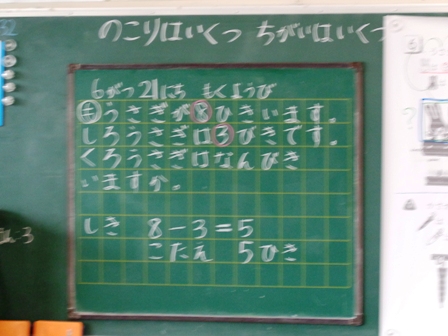 のこりはいくつ ちがいはいくつ
6がつ21にち もくようび
も うさぎが8ひきいます。
しろうさぎは3びきです。
くろうさぎはなんびき
いますか。
しき 8-3=5
こたえ 5ひき